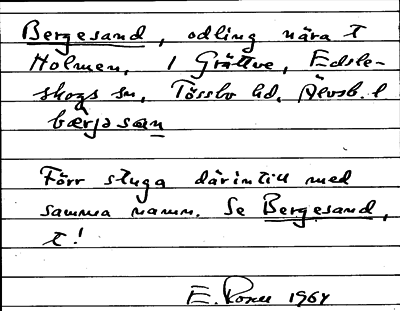 Bergesand, odling nära t
Holmen, i Gråttve, Edsle-
skogs sn, Tössbo hd, Älvsb. l
bærjəsan
Förr stuga därintill med
samma namn. Se Bergesand,
t!
E. Rosell 1964